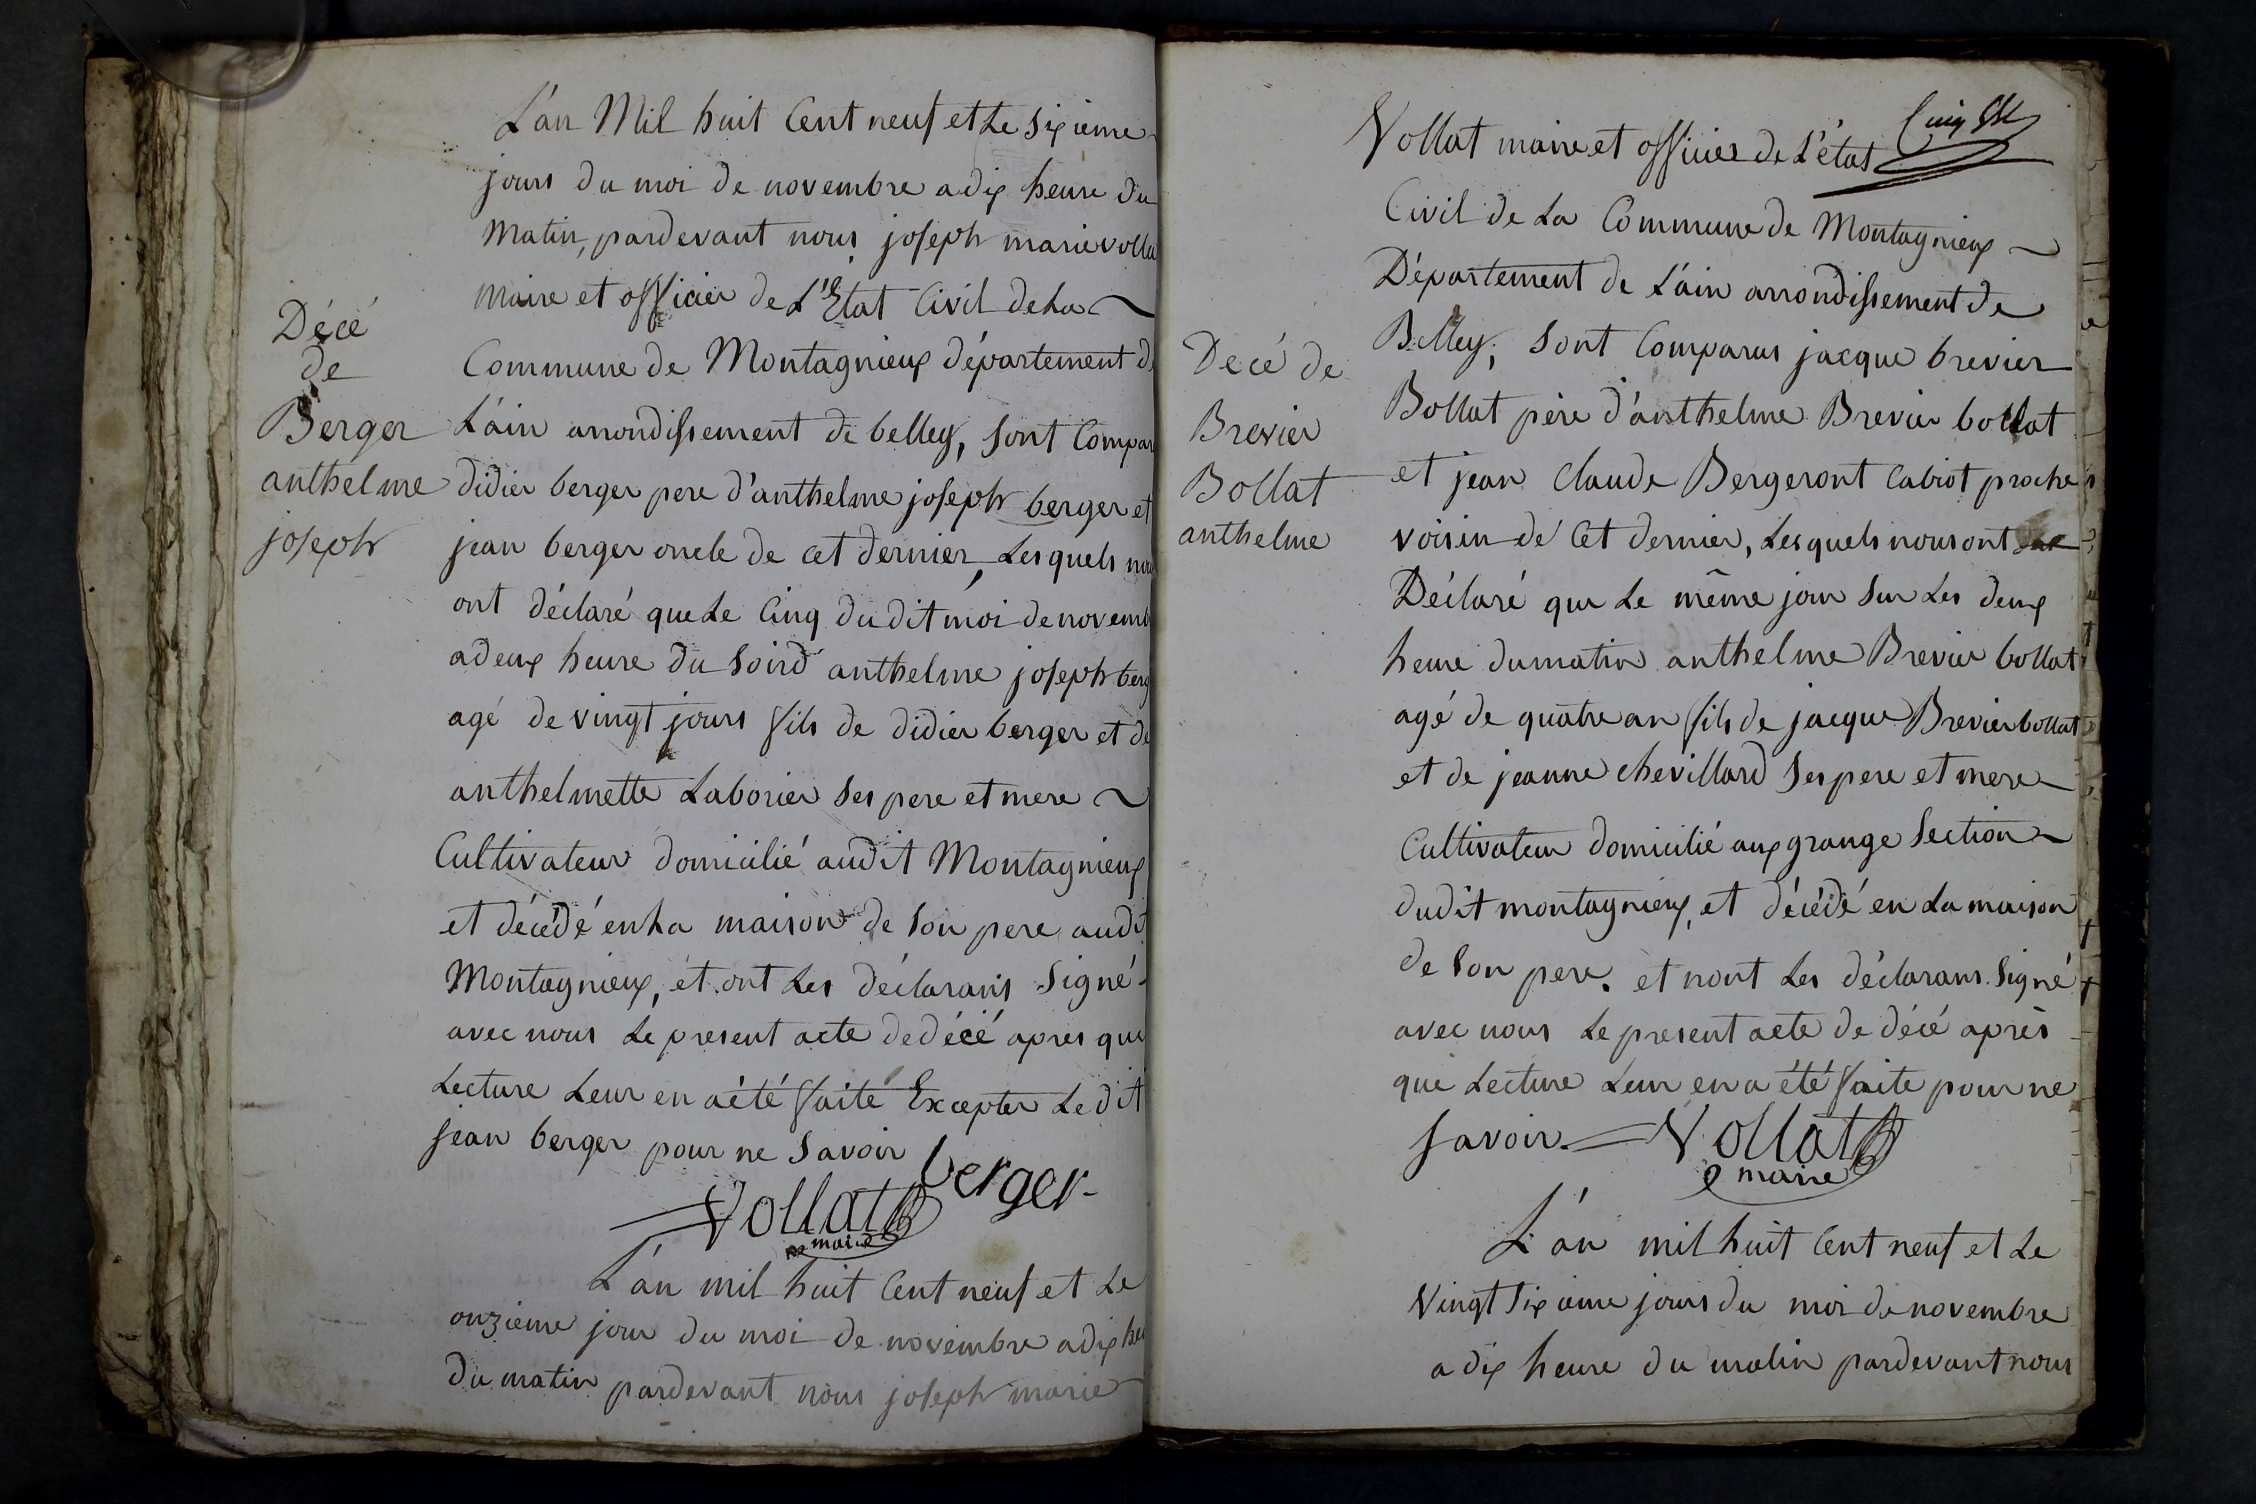 L'an Mil huit Cent neuf et le Sixieme
jours du moi de novembre a dix heure du
Matin, pardevant nous joseph marie volla
Maire et officier de L'Etat Civil de La
Commune de Montagnieux département d
L'ain arrondissement de belley, sont Compar
didier berger pere d'anthelme joseph berger et
jean berger oncle de cet dernier, Lesquels nou
ont déclaré que Le Cinq dudit moi de novemb
a deux heure du soird anthelme joseph berg
agé de vingt jours fils de didier berger et de
anthelmette Laborier ses pere et mere
Cultivateur domicilié audit Montagnieux
et décédé en La maison de son pere audit
Montagnieux, et ont Les déclarans Signé
avec nous Le present acte de décé apres que
Lecture Leur en a été faite Excepter Ledit
jean berger pour ne Savoir
berger
Vollat
maire
Décé
de
Berger
anthelme
joseph
L'an mil huit Cent neuf et Le
onzieme jour du moi de novembre a dix heu
du matin pardevant nous joseph marie
Vollat maire et officier de L'état
Civil de La Commune de Montagnieux
Département de L'ain arrondissement de
Belley, Sont Comparus jacque brevier
Bollat père d'anthelme Brevier bollat
et jean Claude Bergeront Cabiot proche
voisin de Cet dernier, Lesquels nous ont
Déclaré que Le même jour sur Les deux
heure du matin anthelme Brevier bollat
agé de quatre an fils de jacque Brevier bollat
et de jeanne chevillard ses pere et mere
Cultivateur domicilié aux grange Section
dudit montagnieux, et décédé en La maison
de Son pere. et nont Les déclarans Signé
avec nous Le present acte de décé après
que Lecture Leur en a été faite pour ne
Savoir Vollat
maire
Decé de
Brevier
Bollat
anthelme
L'an mil huit Cent neuf et Le
Vingt Sixieme jours du moi de novembre
a dix heure du matin pardevant nous